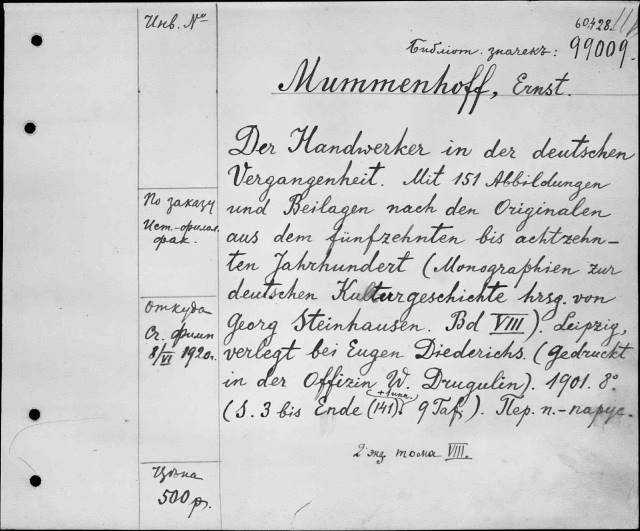 Инв. №
60428
Библіот. значекъ: 99009.
Mummenhoff, Ernst.
Der Handwerker in der deutschen
Vergangenheit. Mit 151 Abbildungen
und Beilagen nach den Originalen
aus dem fünfzehnten bis achtzehn-
ten Jahrhundert (Monographien zur
deutschen Kulturgeschichte hrsg. von
Georg Steinhausen. Bd VIII). Leipzig,
verlegt bei Eugen Diederichs. (Gedruckt
in der Offizin W. Drugulin). 1901. 8°
(S. 3 bis Ende (141) 9 Taf.). Пер. п.-парус.
2 экз тома VIII.
По заказу
Ист.-филол.
фак.
Откуда
Сг. филип
8/VI 1920г.
Цѣна
500 р.